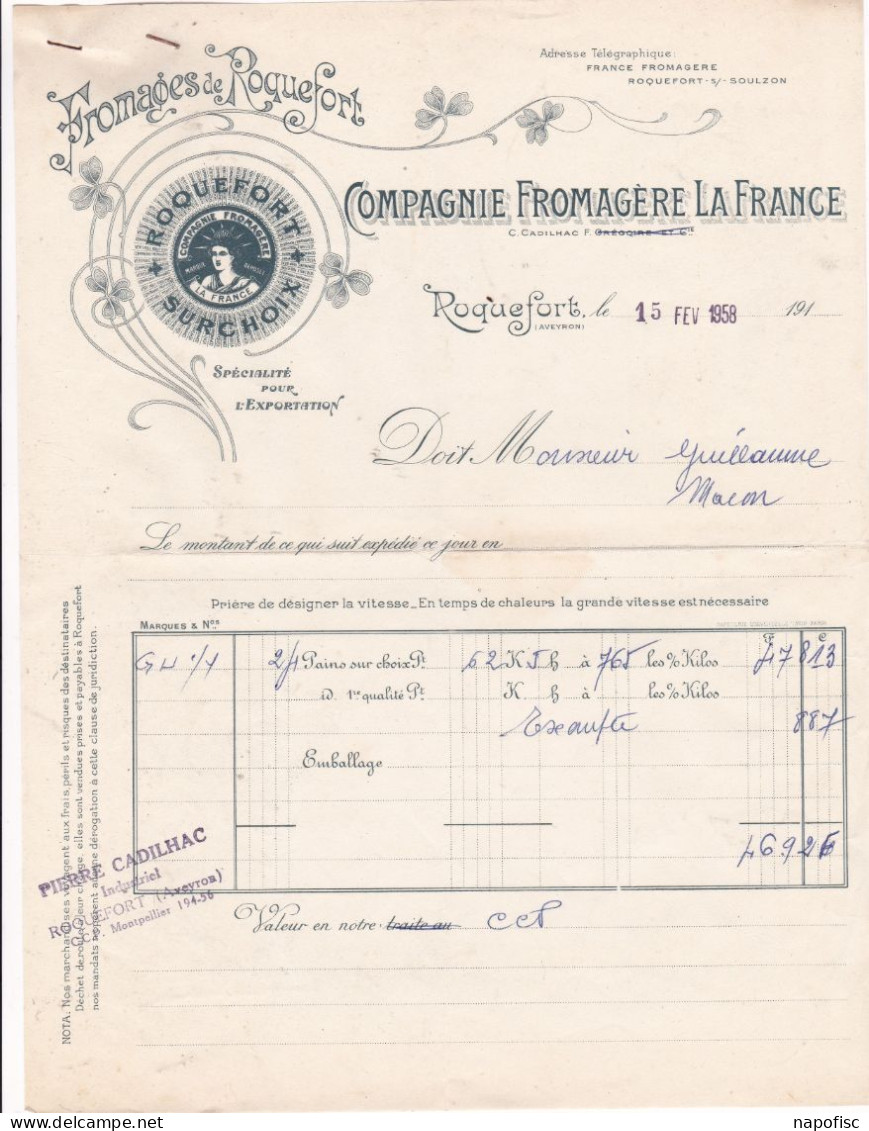 Fromages de Roquefort
Adresse Télégraphique:
FRANCE FROMAGERE
ROQUEFORT-s/- SOULZON
ROQUEFORT
SURCHOIX
COMPAGNIE FROMAGÈRE
LA FRANCE
COMPAGNIE FROMAGÈRE LA FRANCE
C. CADILHAC F. GRÉGOIRE ET Cie
Roquefort, le 15 FEV 1958 191
(AVEYRON)
SPÉCIALITÉ
POUR
L'EXPORTATION
Doit Monsieur Guillaume
Macon
Le montant de ce qui suit expédié ce jour en
Prière de désigner la vitesse_En temps de chaleurs la grande vitesse est nécessaire
MARQUES & Nos
F C
24 Pains sur choix Pt 62 K 5 h à 765 les % Kilos 47 813
iD. 1re qualité Pt K h à les % Kilos
887
Emballage
46926
Valeur en notre traite au CCP
PIERRE CADILHAC
Industriel
ROQUEFORT (Aveyron)
C. Montpellier 194-56
NOTA. Nos marchandises voyagent aux frais, périls et risques des déstinataires
Déchet de route à leur charge, elles sont vendues prises et payables à Roquefort
nos mandats n'opérent aucune dérogation à cette clause de juridiction.
napofisc